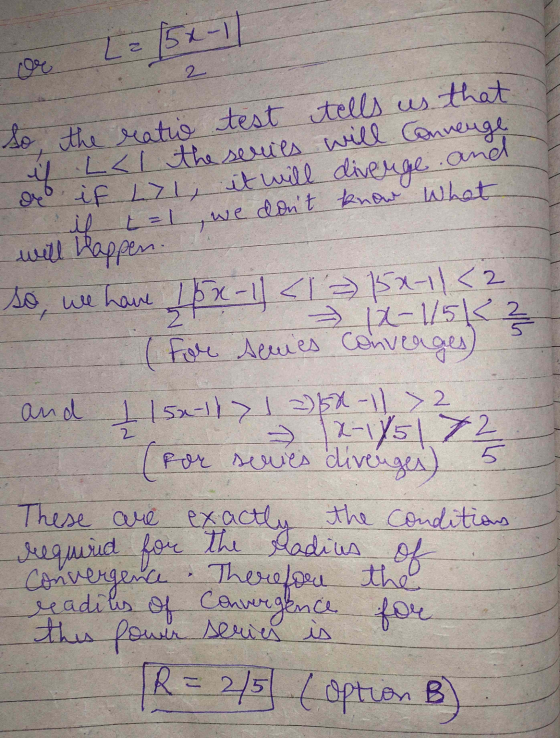 or L = |5x-1|
2
So, the ratio test tells us that
if L<1 the series will Converge
or if L>1, it will diverge and
if L=1, we don't know What
will Happen.
So, we have 1/2 |5x-1| < 1 ⇒ |5x-1| < 2
⇒ |x-1/5| < 2/5
(For series Converges)
and 1/2 |5x-1| > 1 ⇒ |5x-1| > 2
⇒ |x-1/5| > 2/5
(For series diverges)
These are exactly the Conditions
required for the Radius of
Convergence. Therefore the
radius of Convergence for
this Power series is
R = 2/5 (Option B)